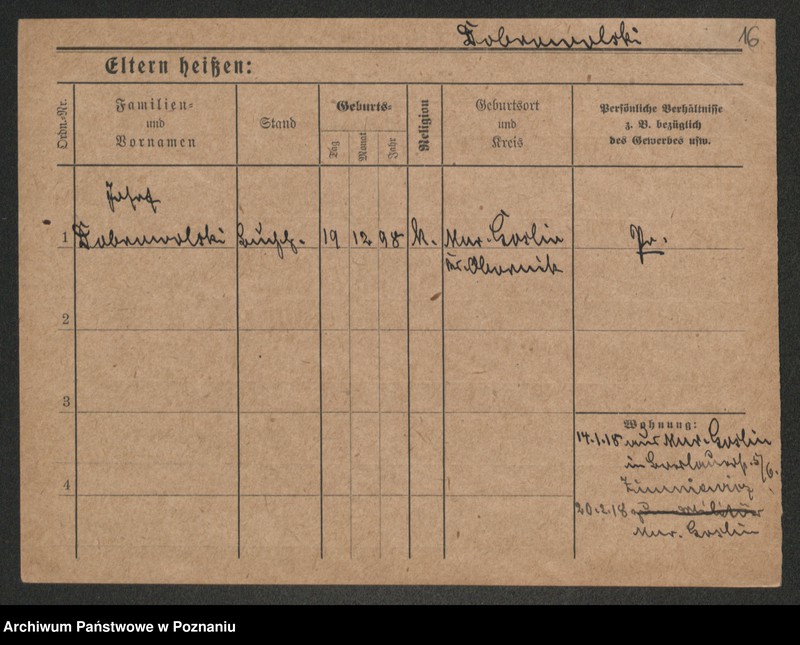 Dobrowolski 16
Eltern heißen:
Ordn.-Nr.
Familien=
und
Vornamen
Stand
Geburts=
Tag
Monat
Jahr
Religion
Geburtsort
und
Kreis
Persönliche Verhältnisse
z. B. bezüglich
des Gewerbes usw.
Josef
1 Dobrowolski 19 12 98 K. Mur. Goslin Pr.
Kr. Obornik
2
3
4
Wohnung:
14.1.18 aus Mur. Goslin
in 5/6.
Zimniewicz
20.2.18 zum Militär
Mur. Goslin
Archiwum Państwowe w Poznaniu